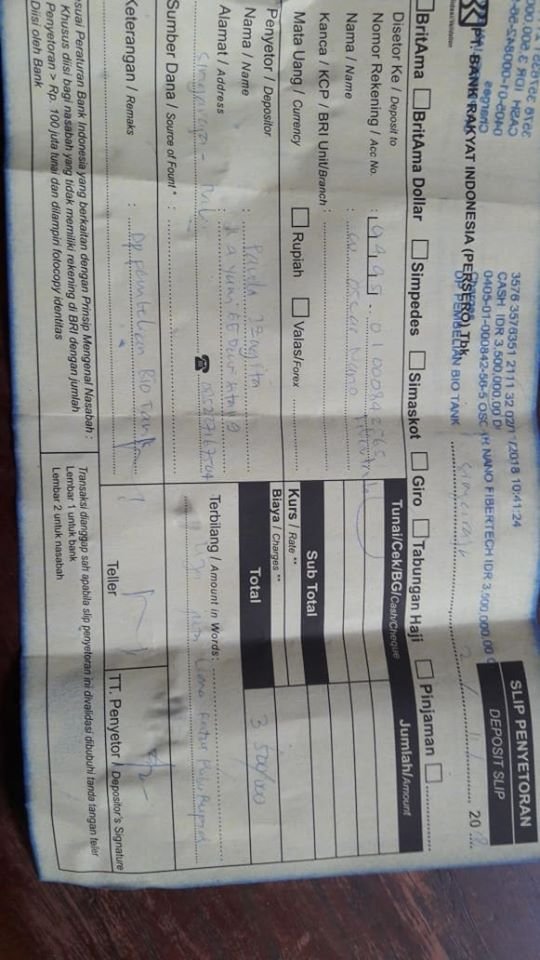 SLIP PENYETORAN
DEPOSIT SLIP
3576 3576351 2111 32 02/11/2018 10:41:24
CASH IDR 3,500,000.00
0405-01-000842-56-5 OSCAR NANO FIBERTECH IDR 3,500,000.00
DP PEMBELIAN BIO TANK
PT. BANK RAKYAT INDONESIA (PERSERO) Tbk.
20 18
BritAma
BritAma Dollar
Simpedes
Simaskot
Giro
Tabungan Haji
Pinjaman
Disetor Ke / Deposit to
Nomor Rekening / Acc No. :
Nama / Name : CV. Oscar Nano
Kanca / KCP / BRI Unit/Branch :
Mata Uang / Currency Rupiah Valas/Forex
Tunai/Cek/BG/Cash/Cheque
Jumlah/Amount
Sub Total
Kurs / Rate **
Biaya / Charges **
Total 3.500.000
Penyetor / Depositor
Nama / Name :
Alamat / Address :
Sumber Dana / Source of Fount * :
Keterangan / Remaks : Dp pembelian Bio Tank
Terbilang / Amount in Words :
Tiga juta Lima Ratus Ribu Rupiah
Teller
TT. Penyetor / Depositor's Signature
sesuai Peraturan Bank Indonesia yang berkaitan dengan Prinsip Mengenal Nasabah :
Khusus diisi bagi nasabah yang tidak memiliki rekening di BRI dengan jumlah
Penyetoran > Rp. 100 juta tunai dan dilampiri fotocopy identitas
Diisi oleh Bank
Transaksi dianggap sah apabila slip penyetoran ini divalidasi dibubuhi tanda tangan teller
Lembar 1 untuk bank
Lembar 2 untuk nasabah